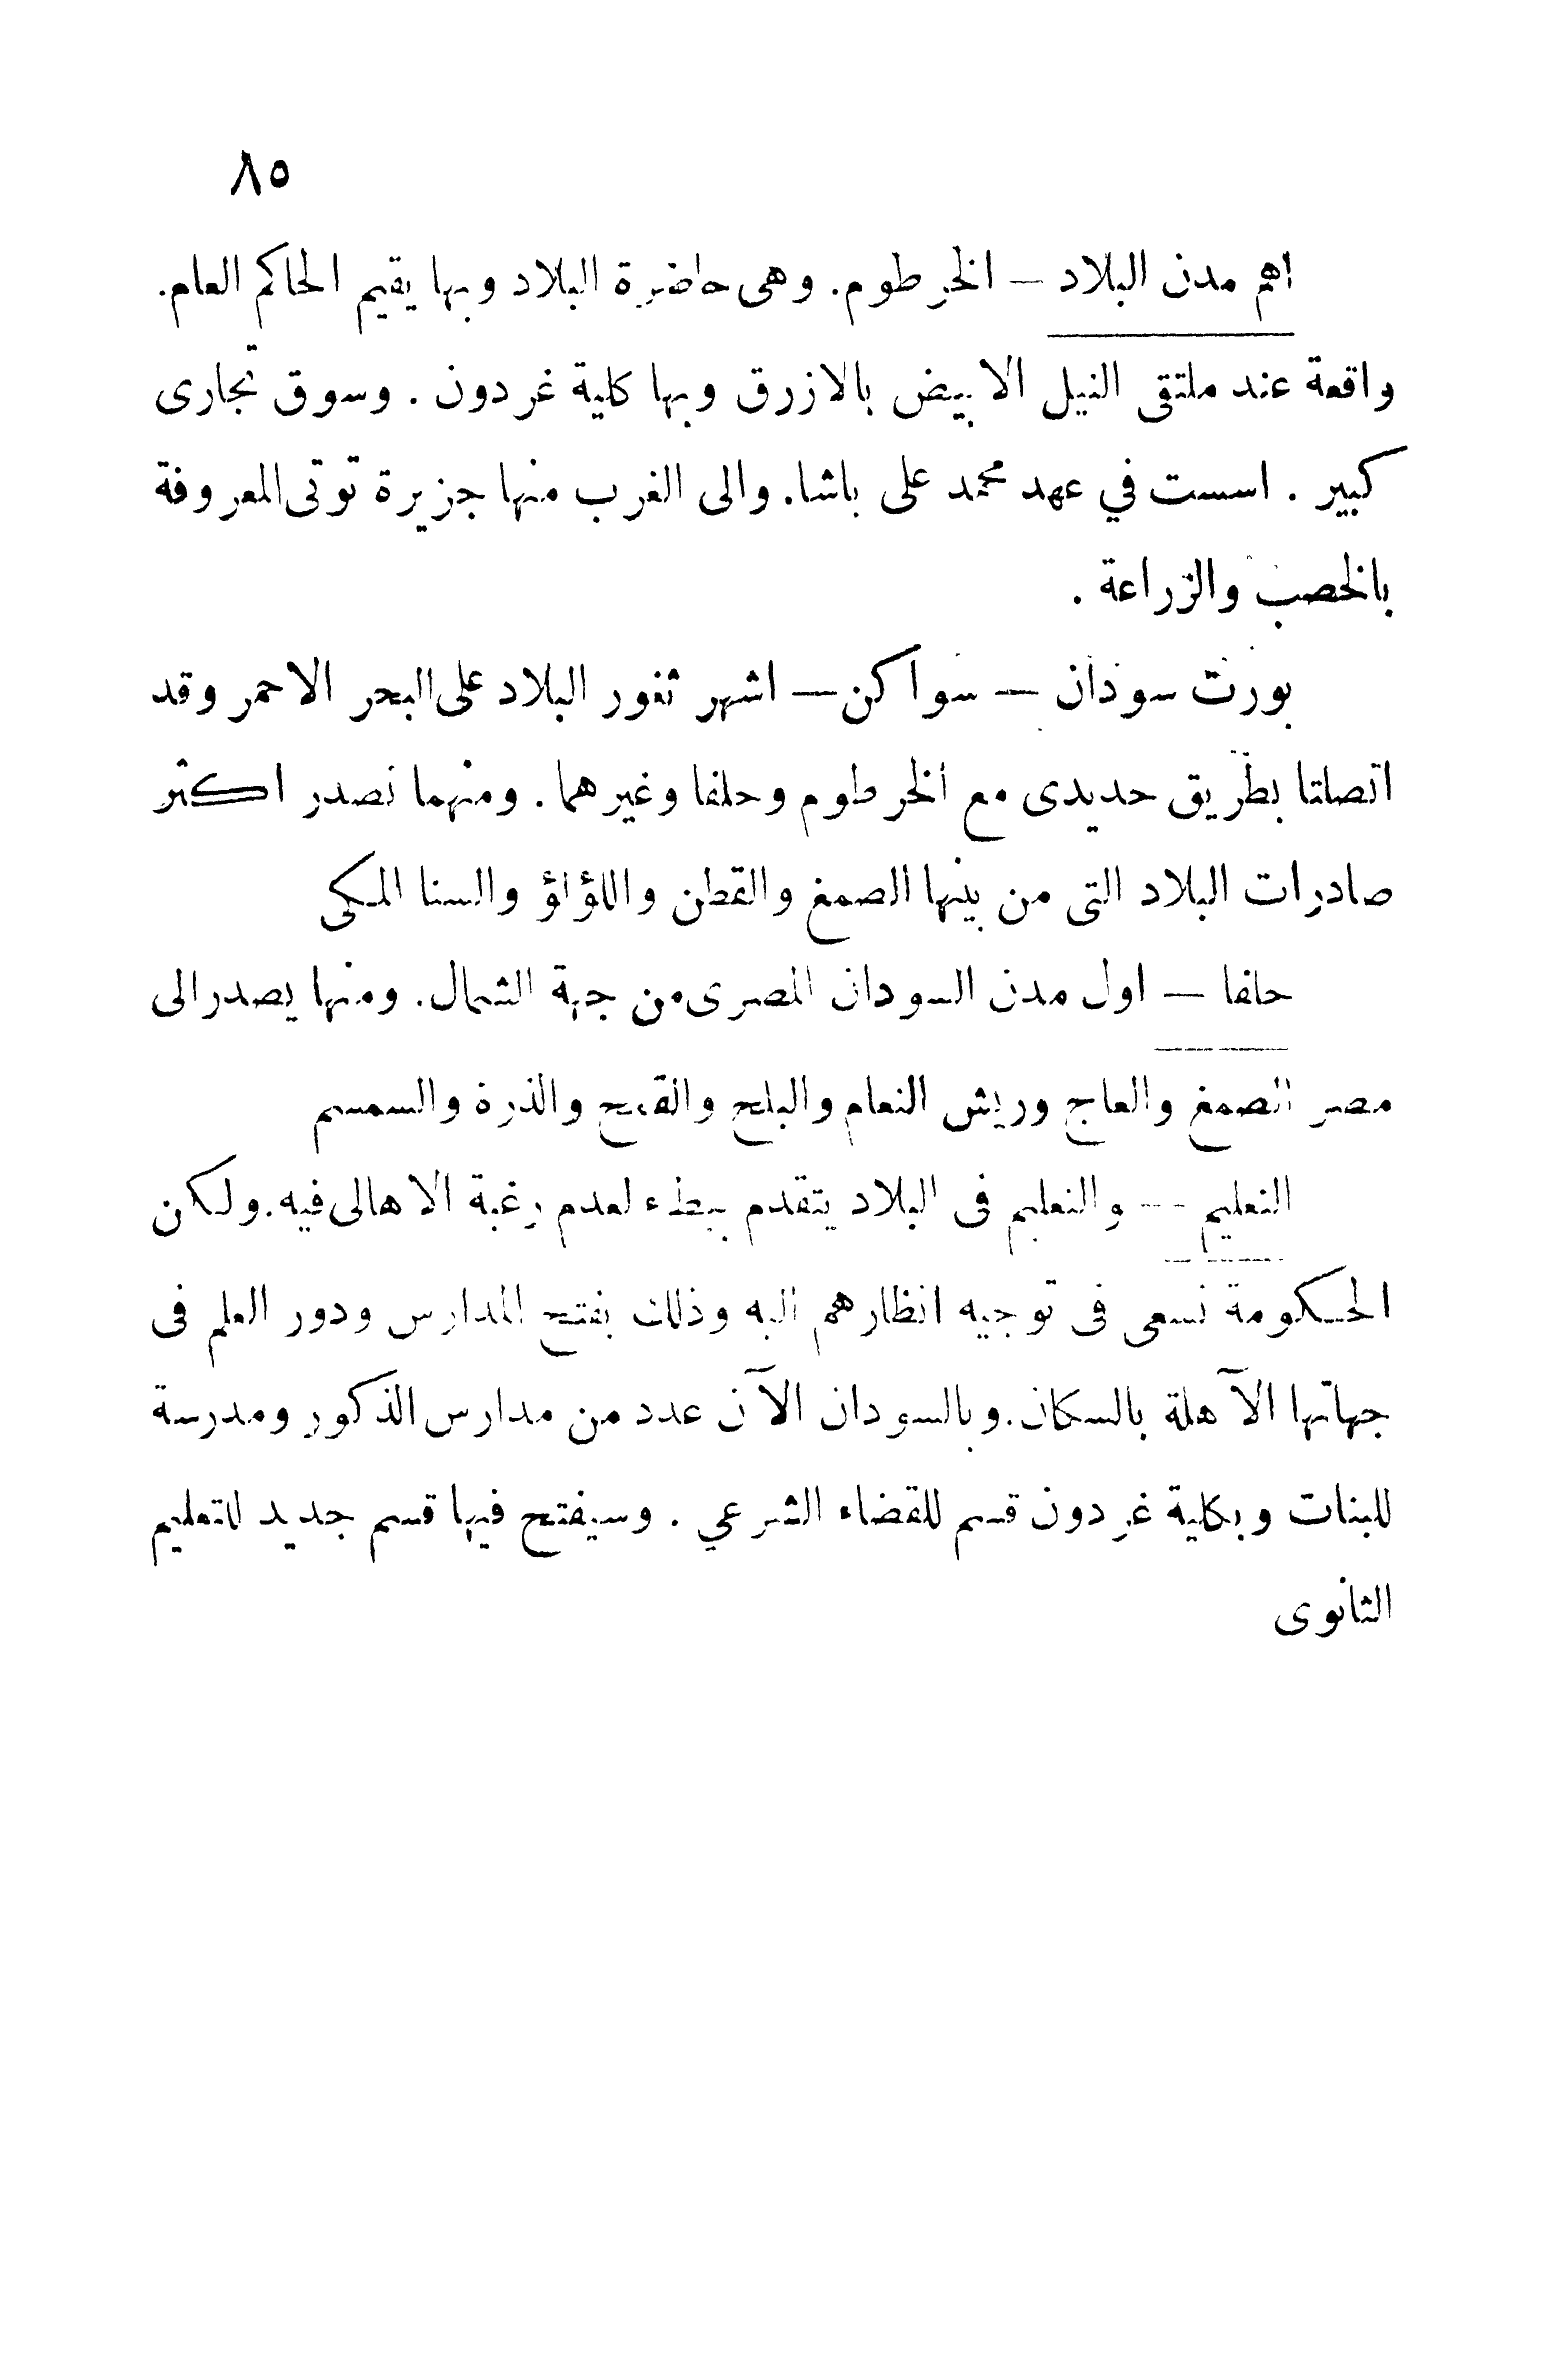 ٨٥
اهم مدن البلاد — الخرطوم. وهى حاضرة البلاد وبها يقيم الحاكم العام.
واقعة عند ملتقى النيل الابيض بالازرق وبها كلية غردون . وسوق تجارى
كبير . اسست في عهد محمد على باشا. والى الغرب منها جزيرة توتى المعروفة
بالخصب والزراعة .
بورت سودان — سواكن — اشهر ثغور البلاد على البحر الاحمر وقد
اتصلتا بطريق حديدى مع الخرطوم وحلفا وغيرهما. ومنهما تصدر اكثر
صادرات البلاد التى من بينها الصمغ والقطن واللؤلؤ والسنا المكى
حلفا — اول مدن السودان المصرى من جهة الشمال. ومنها يصدر الى
مصر الصمغ والعاج وريش النعام والبلح والقمح والذرة والسمسم
التعليم -- والتعليم فى البلاد يتقدم ببطء لعدم رغبة الاهالى فيه. ولكن
الحكومة تسعى فى توجيه انظارهم اليه وذلك بفتح المدارس ودور العلم فى
جهاتها الآهلة بالسكان. وبالسودان الآن عدد من مدارس الذكور ومدرسة
للبنات وبكلية غردون قسم للقضاء الشرعي . وسيفتح فيها قسم جديد للتعليم
الثانوى